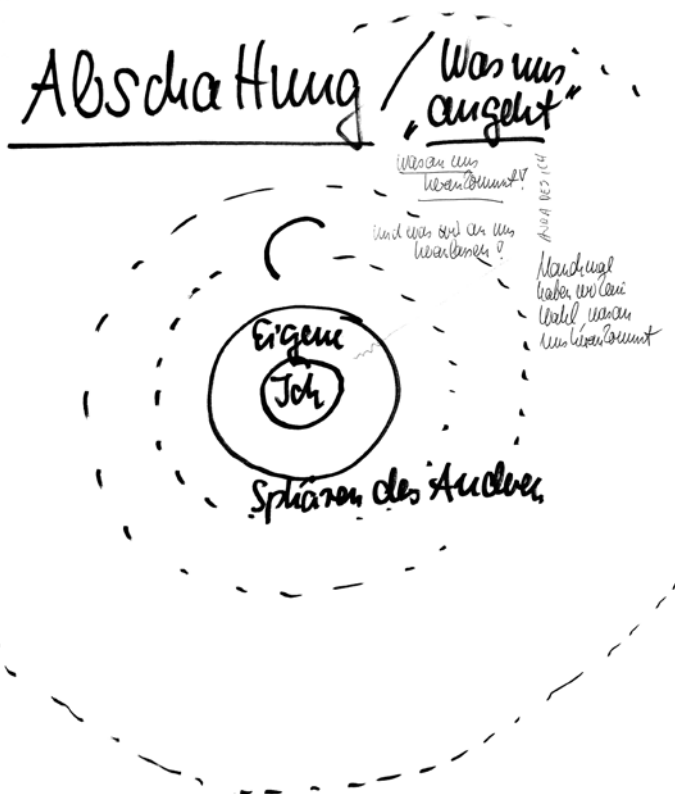 Abschattung / Was uns
„angeht"
was an uns
herankommt!
und was wir an uns
heranlassen?
AURA DES ICH
Manchmal
haben wir keine
Wahl, was an
uns herankommt
Eigene
Ich
Sphären des Anderen